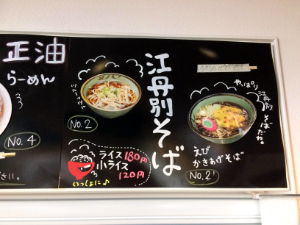 正油
らーめん
No.4
No.2
ライス 180円
小ライス 120円
いっしょに♪
江丹別そば
やっぱり
江丹別
そばだね
えび
かきあげそば
No.2'